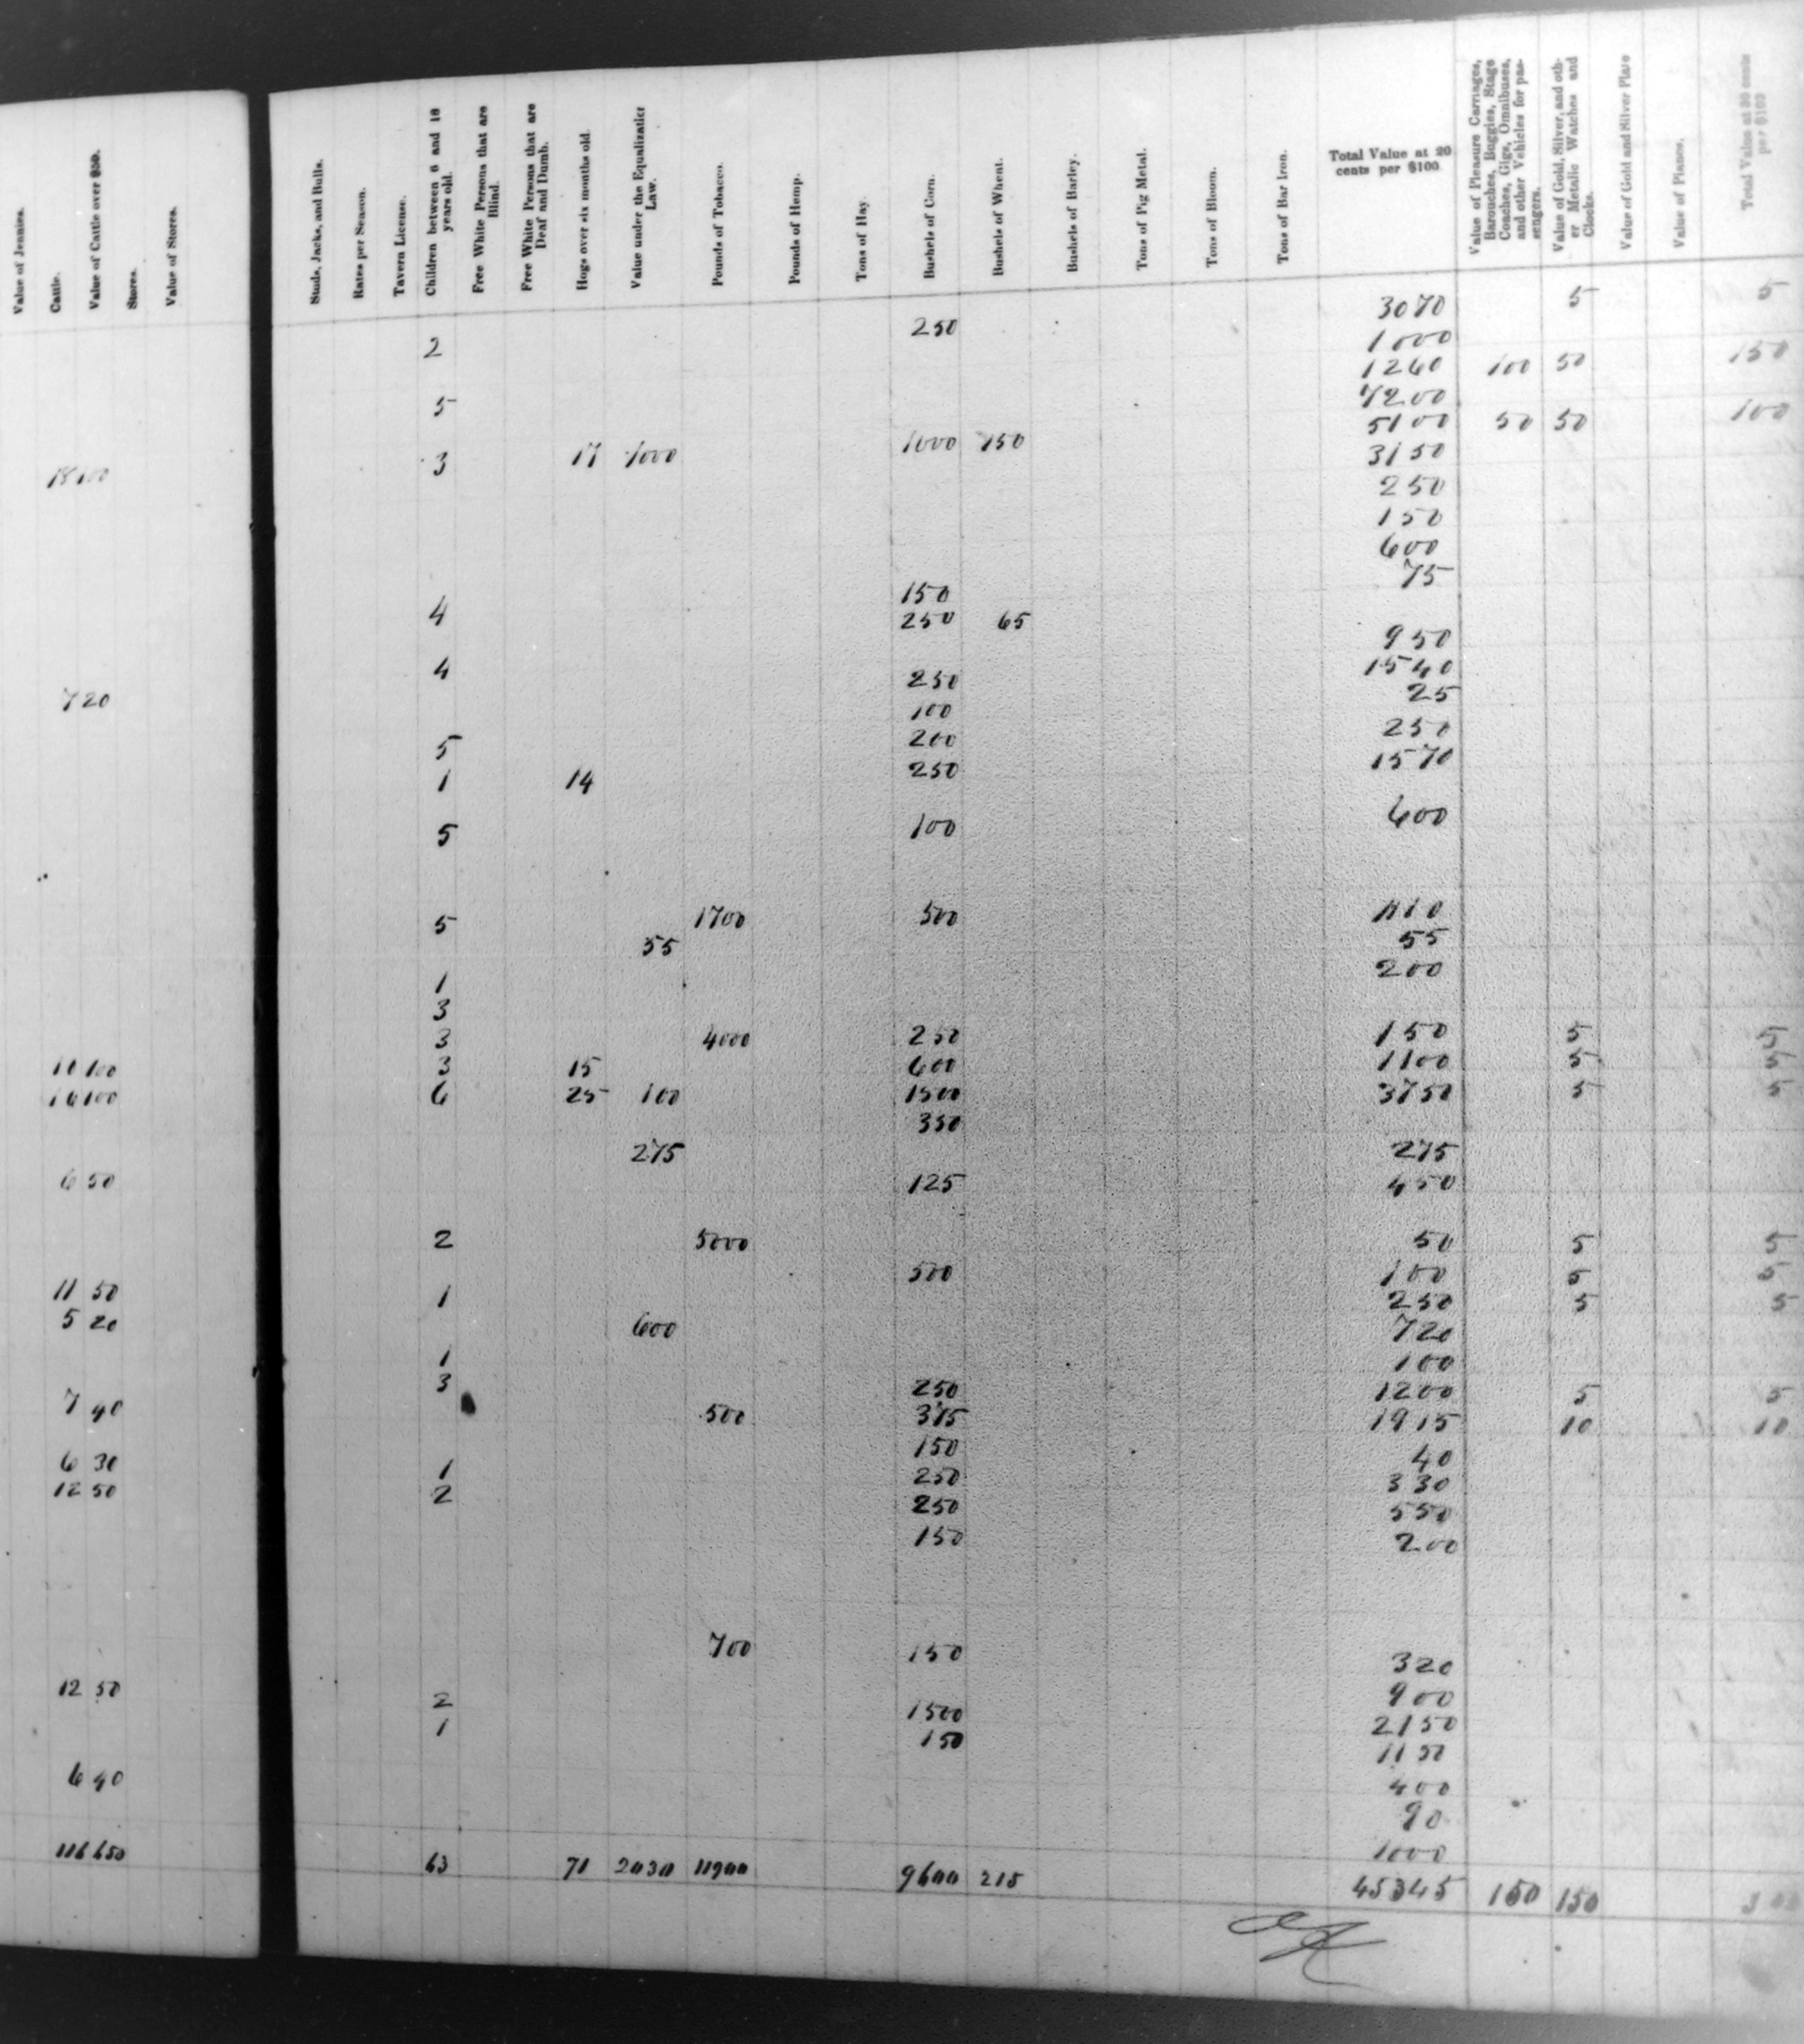 Value of Jennies. Cattle. Value of Cattle over $50. Stores. Value of Stores. Studs, Jacks, and Bulls. Rates per Season. Tavern License. Children between 6 and 18 years old. Free White Persons that are Blind. Free White Persons that are Deaf and Dumb. Hogs over six months old. Value under the Equalization Law. Pounds of Tobacco. Pounds of Hemp. Tons of Hay. Bushels of Corn. Bushels of Wheat. Bushels of Barley. Tons of Pig Metal. Tons of Bloom. Tons of Bar Iron. Total Value at 20 cents per $100. Value of Pleasure Carriages, Barouches, Buggies, Stage Coaches, Gigs, Omnibuses, and other Vehicles for passengers. Value of Gold, Silver, and other Metalic Watches and Clocks. Value of Gold and Silver Plate Value of Pianos. Total Value at 30 cents per $100
3070 5 5
2 250 1000
1260 100 50 150
5 7200
5100 50 50 100
18 100 3 17 1000 1000 150 3150
250
150
600
75
150
4 250 65
950
4 1540
7 20 250 25
100
200 250
5 1570
1 14 250
600
5 100
5 1700 500 1110
55 55
200
1
3
3 4000 250 150 5 5
10 100 3 15 600 1100 5 5
16 100 6 25 100 1500 3750 5 5
350
275 275
6 50 125 450
2 5000 50 5 5
500 100 5 5
11 50 1 250 5 5
5 20 600 720
1 100
3 250 1200 5 5
7 40 500 375 1915 10 10
150 40
6 30 1 250 330
12 50 2 250 550
150 200
700 150 320
12 50 2 900
1 1500 2150
150 1150
6 40 400
90
1000
116 650 63 71 2030 11900 9600 215 45345 150 150 300